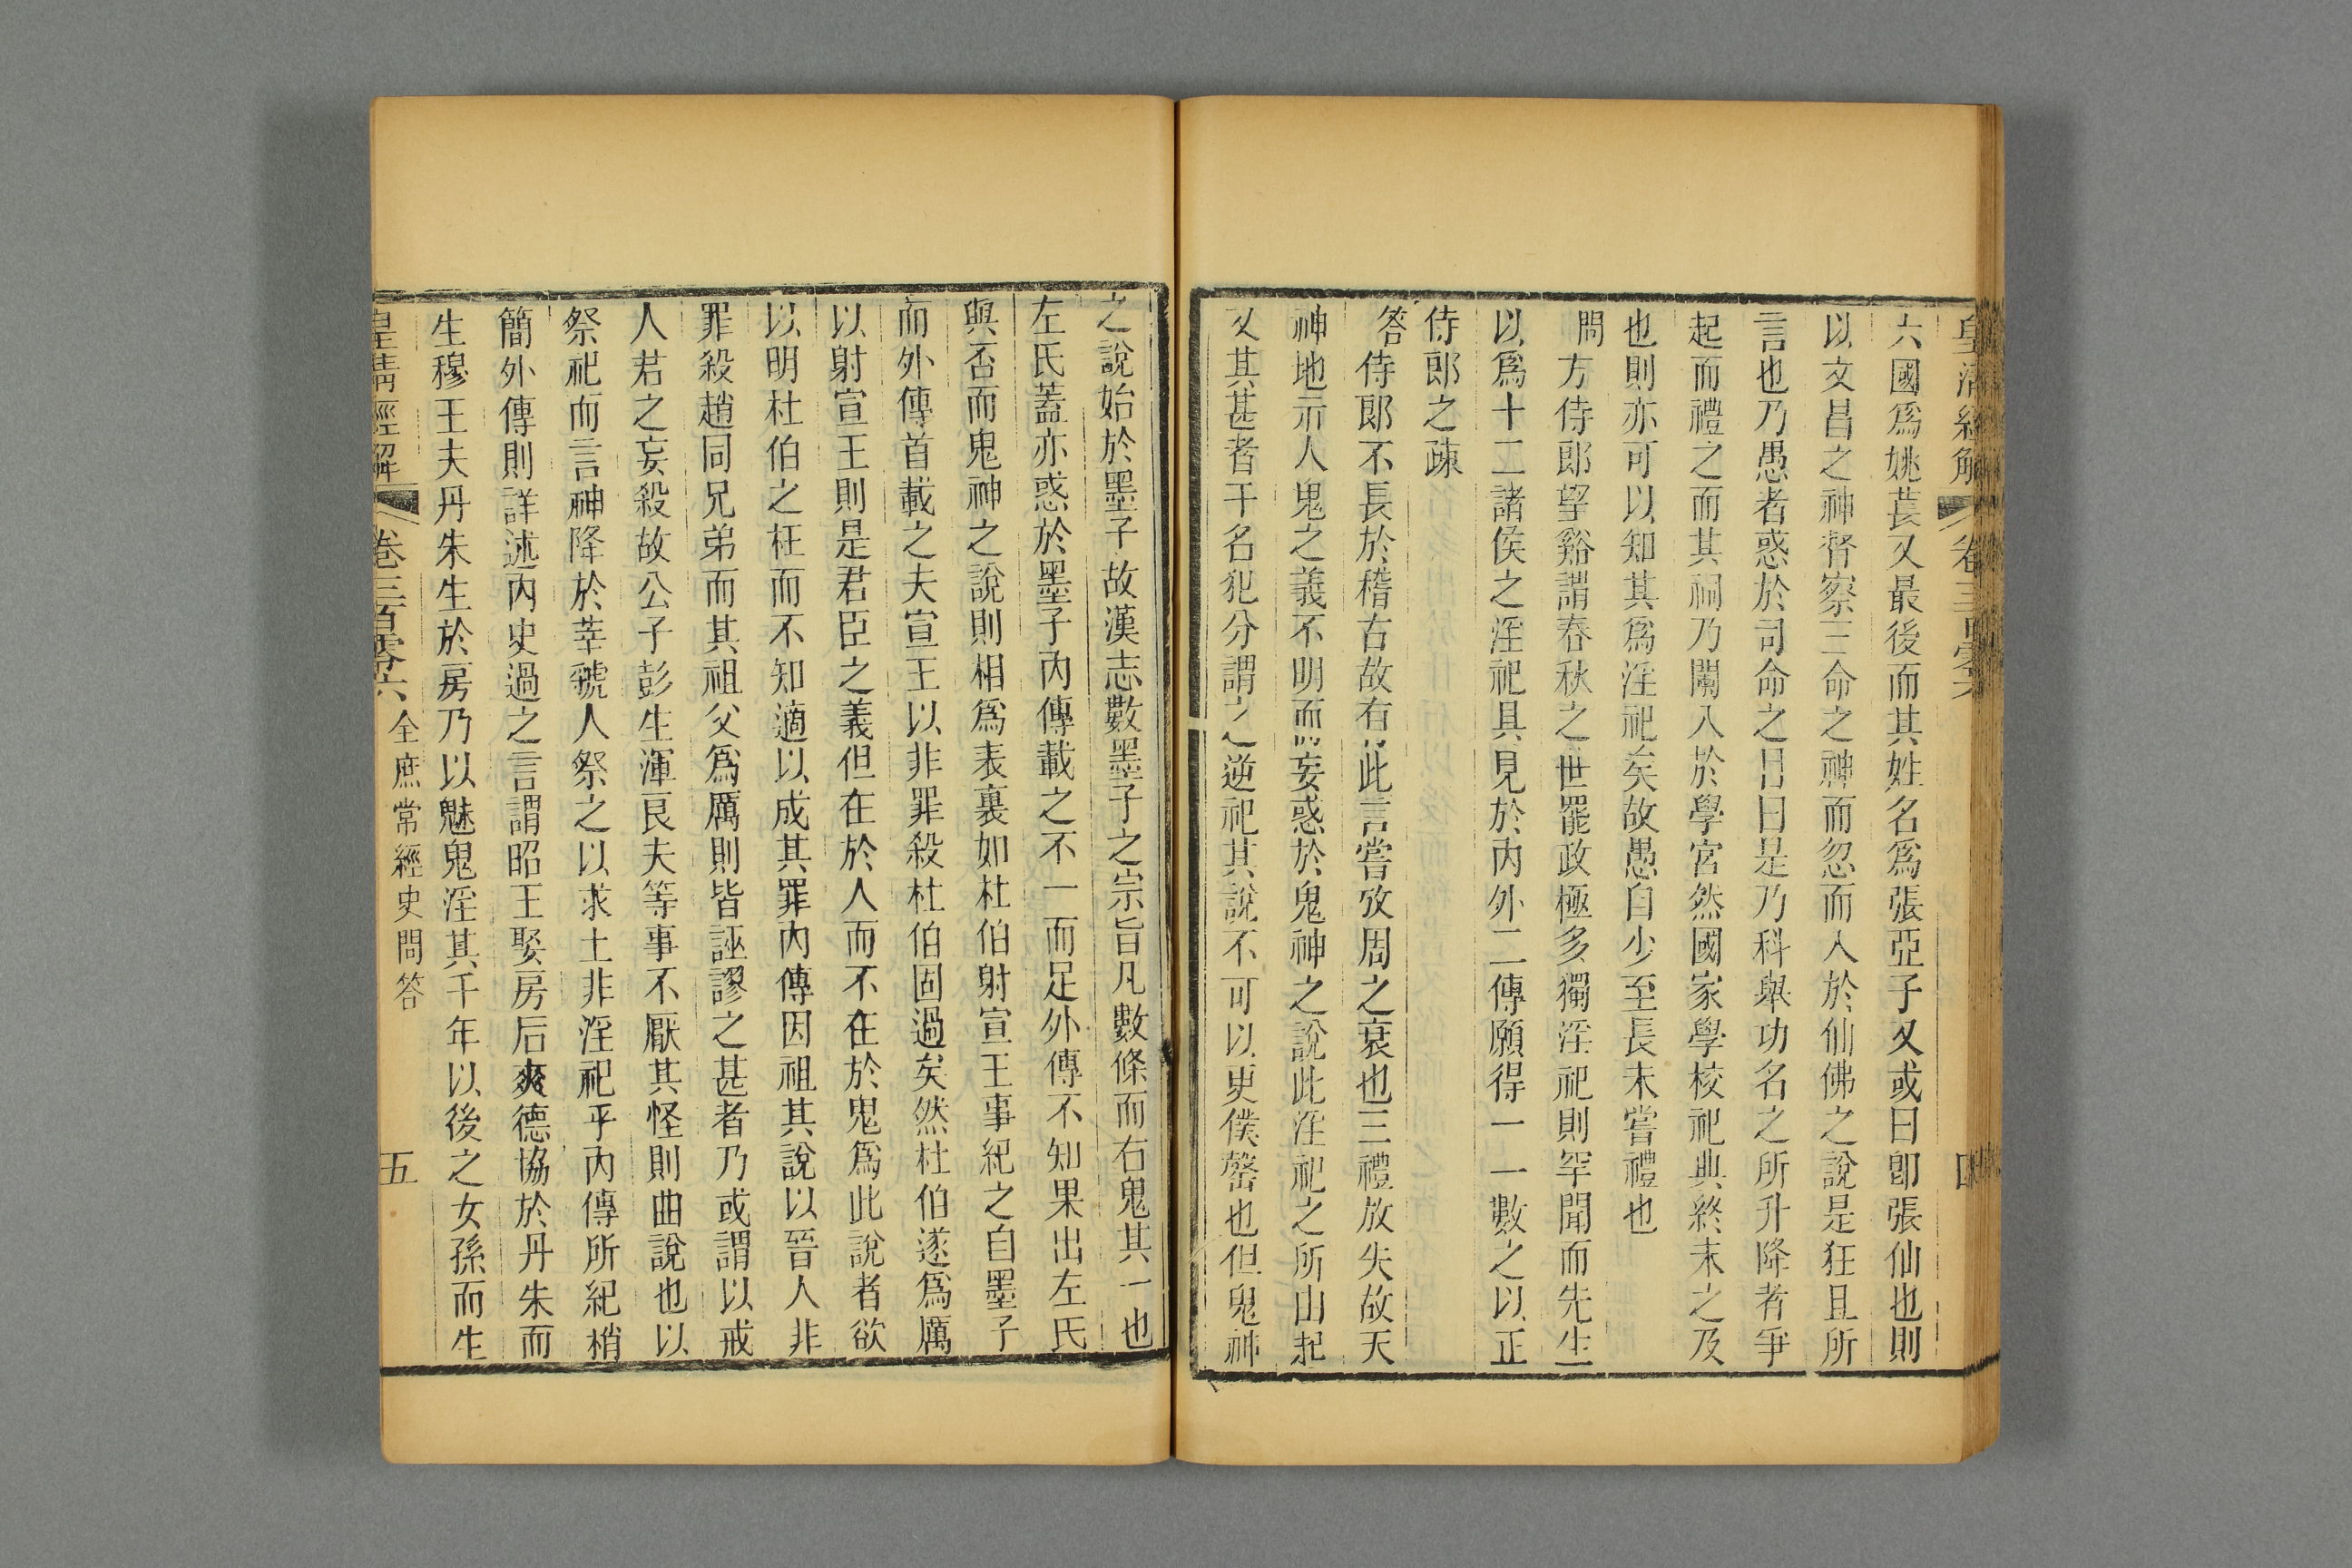 皇清經解 卷三百零六 四
六國爲姚萇又最後而其姓名爲張亞子又或曰卽張仙也則
以文昌之神督察三命之神而忽而入於仙佛之說是狂且所
言也乃愚者惑於司命之目曰是乃科舉功名之所升降者爭
起而禮之而其祠乃闌入於學宮然國家學校祀典終未之及
也則亦可以知其爲淫祀矣故愚自少至長未嘗禮也
問方侍郎望谿謂春秋之世罷政極多獨淫祀則罕聞而先生
以爲十二諸侯之淫祀具見於內外二傳願得一一數之以正
侍郎之疎
答侍郎不長於稽古故有此言嘗攷周之衰也三禮放失故天
神地示人鬼之義不明而妄惑於鬼神之說此淫祀之所由起
又其甚者干名犯分謂之逆祀其說不可以更僕罄也但鬼神
之說始於墨子故漢志數墨子之宗旨凡數條而右鬼其一也
左氏蓋亦惑於墨子內傳載之不一而足外傳不知果出左氏
與否而鬼神之說則相爲表裏如杜伯射宣王事紀之自墨子
而外傳首載之夫宣王以非罪殺杜伯固過矣然杜伯遂爲厲
以射宣王則是君臣之義但在於人而不在於鬼爲此說者欲
以明杜伯之枉而不知適以成其罪內傳因祖其說以晉人非
罪殺趙同兄弟而其祖父爲厲則皆誣謬之甚者乃或謂以戒
人君之妄殺故公子彭生渾良夫等事不厭其怪則曲說也以
祭祀而言神降於莘虢人祭之以求土非淫祀乎內傳所紀稍
簡外傳則詳述內史過之言謂昭王娶房后爽德協於丹朱而
生穆王夫丹朱生於房乃以魅鬼淫其千年以後之女孫而生
皇清經解 卷三百零六 全庶常經史問答 五